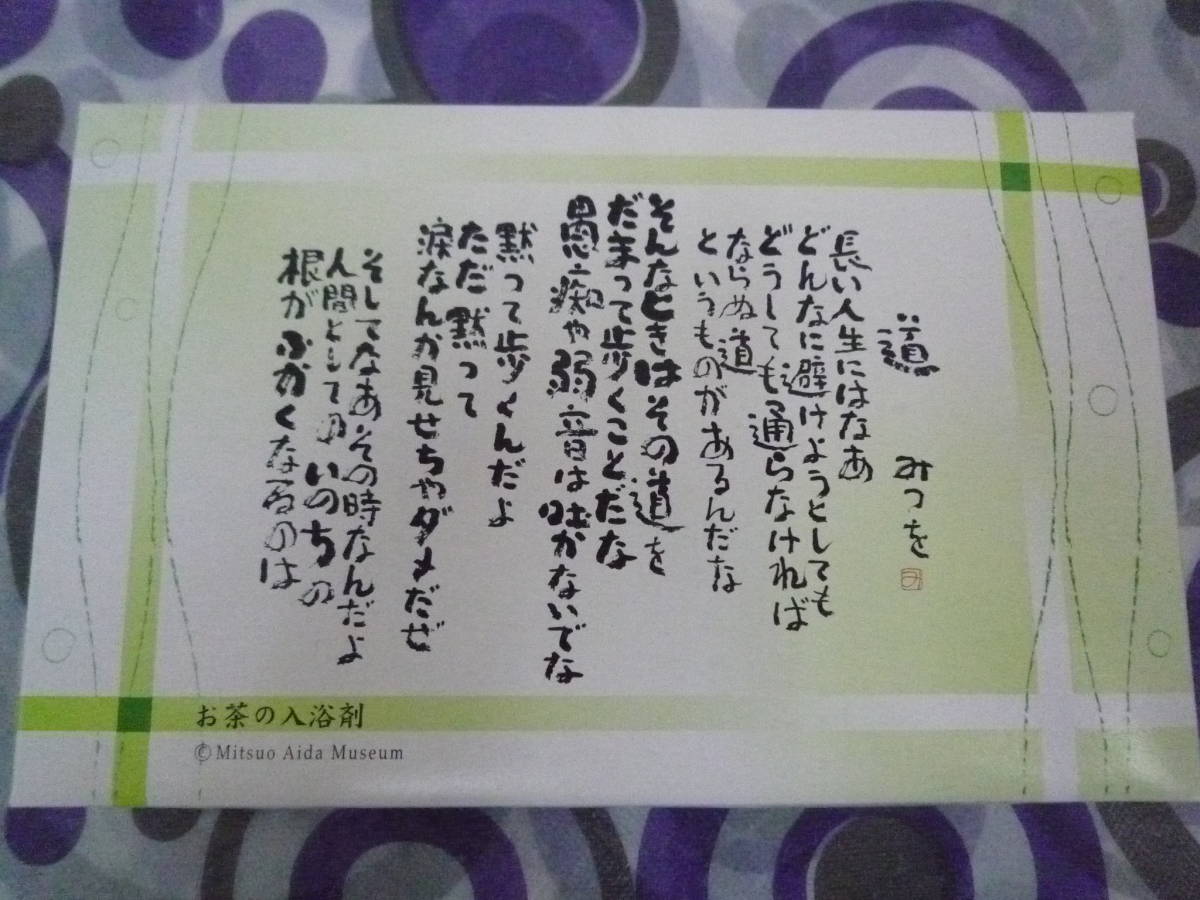 道
みつを
長い人生にはなあ
どんなに避けようとしても
どうしても通らなければ
ならぬ道
というものがあるんだな
そんなときはその道を
だまって歩くことだな
愚痴や弱音は吐かないでな
黙って歩くんだよ
ただ黙って
涙なんか見せちゃダメだぜ
そしてなあその時なんだよ
人間としてのいのちの
根がふかくなるのは
お茶の入浴剤
©Mitsuo Aida Museum